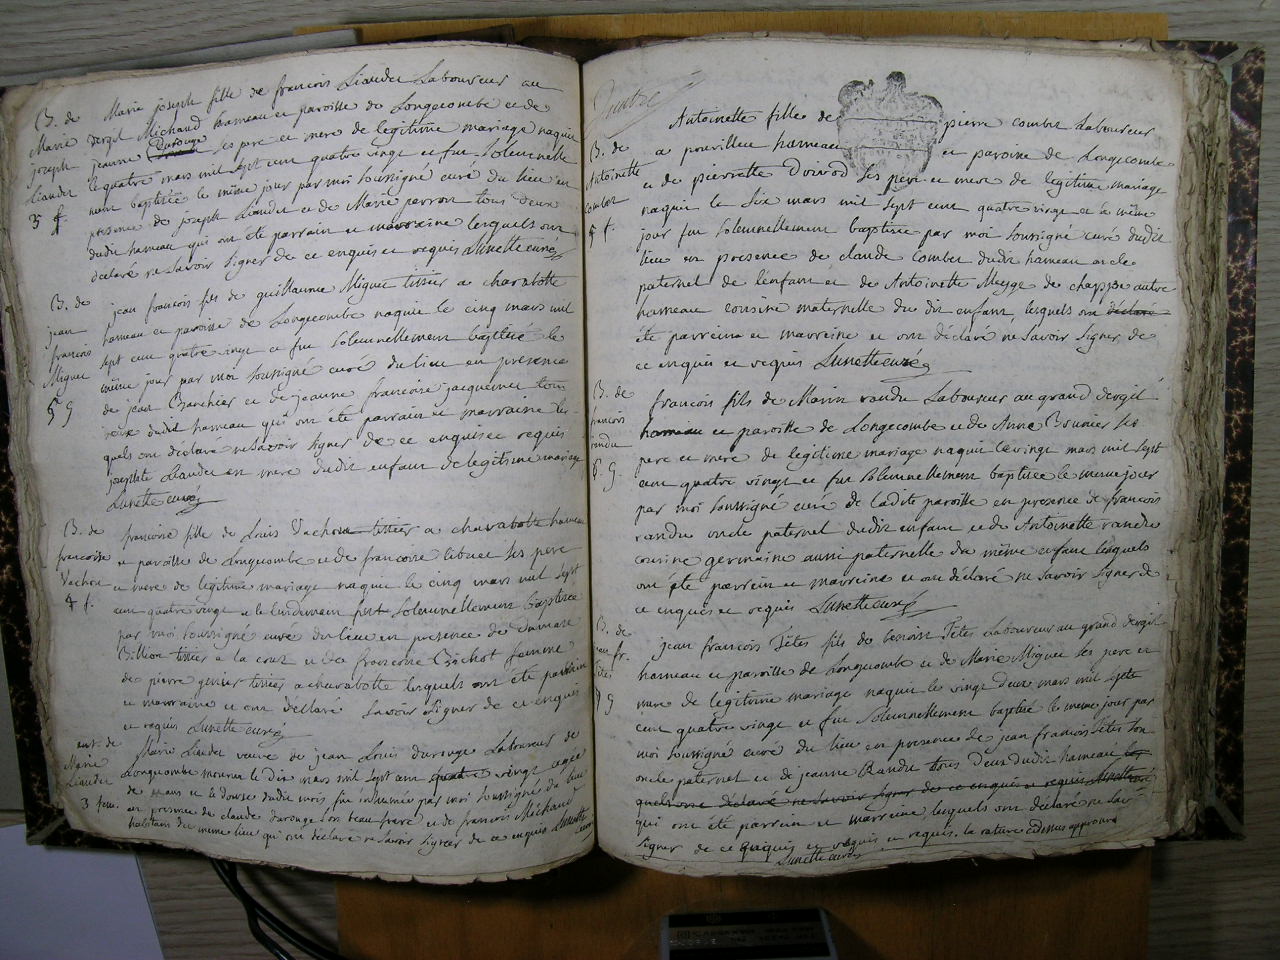 B. de
Marie
joseph
Liaudet
3 f.
Marie joseph fille de francois Liaudet Laboureur au
dergil Michaud hameau et paroisse de Longecombe et de
jeanne Darouge ses pere et mere de legitime mariage naquit
le quatre mars mil sept cent quatre vingt et fut solemnelle
ment baptisée le même jour par moi soussigné curé du lieu en
presence de joseph Liaudet et de Marie perron tous deux
dudit hameau qui ont été parrain et marraine lesquels ont
declaré ne savoir signer de ce enquis et requis Lunette curé
B. de
jean
francois
Miguet
5 g
jean francois fils de guillaume Miguet tissier a charabotte
hameau et paroisse de Longecombe naquit le cinq mars mil
sept cent quatre vingt et fut solemnellement baptisé le
même jour par moi soussigné curé du lieu en presence
de jean et de jeanne francoise jacquemet tous
deux dudit hameau qui ont été parrain et marraine les
quels ont déclaré ne savoir signer de ce enquis et requis
Liaudet est mere dudit enfant de legitime mariage
Lunette curé
B. de
francoise
Vachon
4 f.
francoise fille de Louis Vachon tissier a charabotte hameau
et paroisse de Longecombe et de francoise ses pere
et mere de legitime mariage naquit le cinq mars mil sept
cent quatre vingt et le lendemain fut solemnellement baptisée
par moi soussigné curé du lieu en presence de
Billion tissier a la et de francoise Bichot femme
de pierre tissier a charabotte lesquels ont été parrain
et marraine et ont déclaré savoir signer de ce enquis
et requis Lunette curé
ent. de
Marie
Liaudet
3 fem.
Marie Liaudet veuve de jean Louis darouge Laboureur de
Longecombe mourut le dix mars mil sept cent quatre vingt agée
de ans et le douze dudit mois fut inhumée par moi soussigné du lieu
en presence de claude darouge son beau frere et de francois Michaud
habitant du meme lieu qui ont declaré ne savoir signer de ce enquis Lunette
curé
B. de
Antoinette
combet
5 f.
Antoinette fille de pierre combet Laboureur
a pouvillieu hameau et paroisse de Longecombe
et de pierrette Doivod ses pere et mere de legitime mariage
naquit le six mars mil sept cent quatre vingt et le même
jour fut solemnellement baptisée par moi soussigné curé dudit
lieu en presence de claude Combet dudit hameau oncle
paternel de l'enfant et de Antoinette de chappe autre
hameau cousine maternelle du dit enfant, lesquels ont déclaré
été parrein et marreine et ont déclaré ne savoir signer de
ce enquis et requis Lunette curé
B. de
francois
randu
6. g.
francois fils de Marin randu Laboureur au grand dergil
hameau et paroisse de Longecombe et de Anne Bounier ses
pere et mere de legitime mariage naquit le vingt mars mil sept
cent quatre vingt et fut solemnellement baptisée le meme jour
par moi soussigné curé de ladite paroisse en presence de francois
randu oncle paternel dudit enfant et de Antoinette randu
cousine germaine aussi paternelle du même enfant lesquels
ont été parrein et marreine et ont déclaré ne savoir signer de
ce enquis et requis Lunette curé
B. de
jean fr.
Têtes
7 g
jean francois Têtes fils de benoist Têtes Laboureur au grand dergil
hameau et paroisse de Longecombe et de Marie Miguet ses pere et
mere de legitime mariage naquit le vingt deux mars mil sept
cent quatre vingt et fut solemnellement baptisé le meme jour par
moi soussigné curé du lieu en presence de jean francois Têtes son
oncle paternel et de jeanne Randu tous deux dudit hameau les
quels ont déclaré ne savoir signer de ce enquis et requis Lunette curé
qui ont été parrein et marreine lesquels ont déclaré ne savoir
signer de ce enquis et requis. la rature cidessus approuvé
Lunette curé